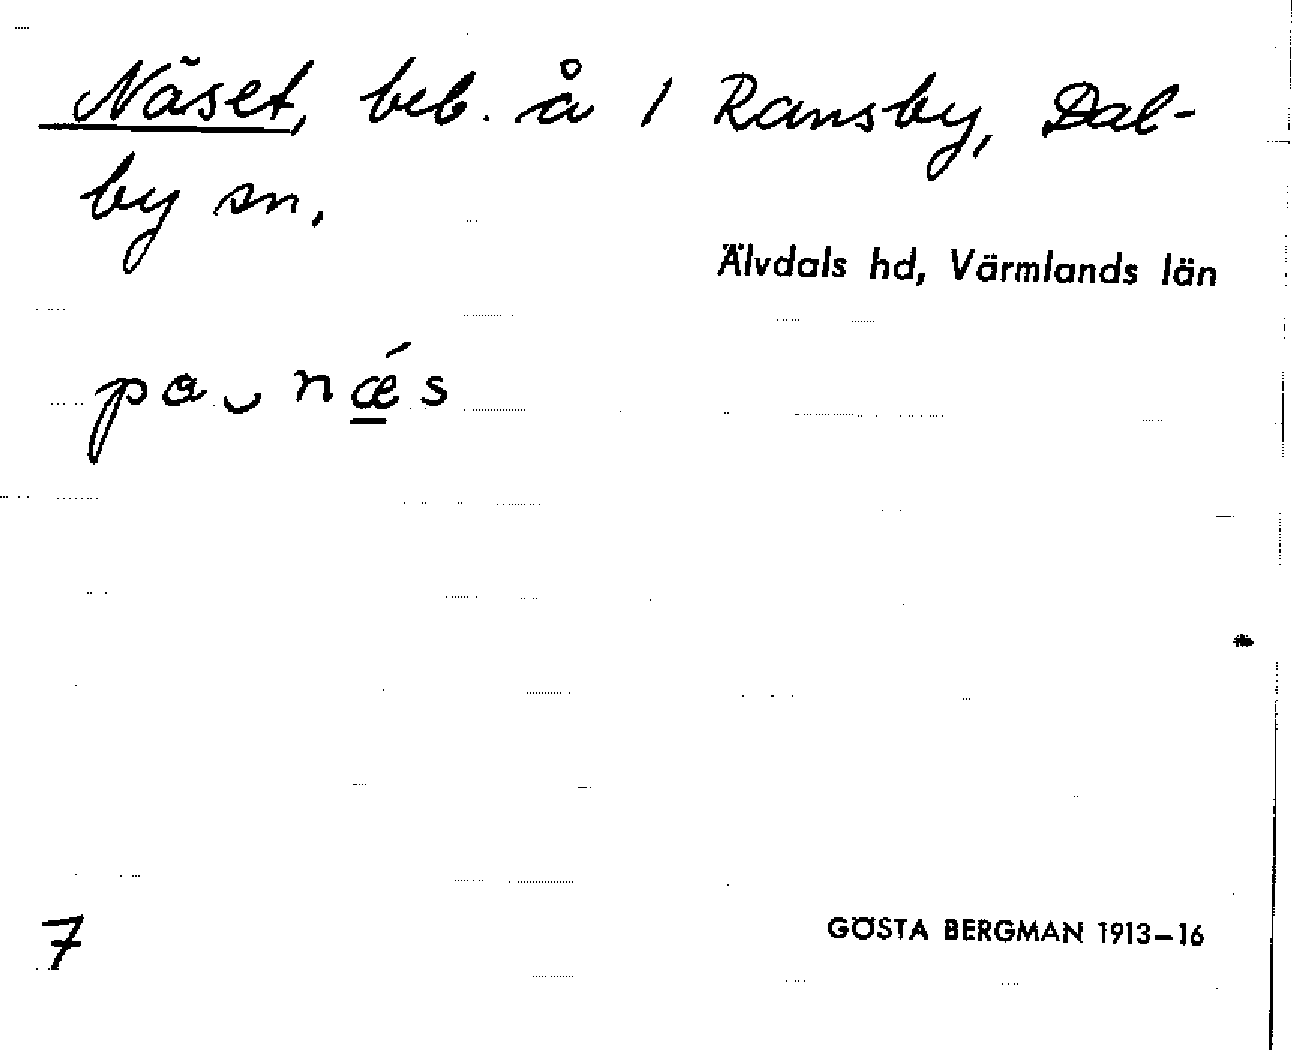 Näset, beb. å 1 Ransby, Dal-
by sn.
Älvdals hd, Värmlands län
pa ‿ nǽ̲s
7
GÖSTA BERGMAN 1913–16